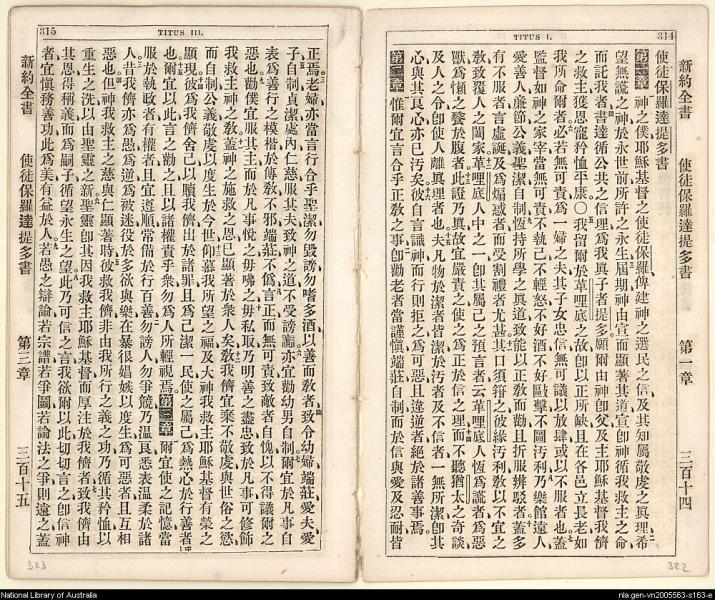 314
TITUS I.
新約全書
使徒保羅達提多書
第一章
三百十四
使徒保羅達提多書
第一章 神之僕耶穌基督之使徒保羅俾建神之選民之信及其知屬敬虔之真理希
望無謊之神於永世前所許之永生屆期神由宣而顯著其道宣卽神循我救主之命
而託我者書達循公共之信理爲我眞子者提多願爾由神卽父及主耶穌基督我儕
之救主獲恩寵矜恤平康〇我留爾於革哩底之故卽以正所缺且在各邑立長老如
我所命爾者必若無可責爲一婦之夫其子女忠信無可議以放肆或以不服者也蓋
監督如神之家宰當無可責不執己不輕怒不好酒不好毆擊不圖污利乃樂館遠人
愛善人廉節公義聖潔自制恆持所學之眞道致能以正教而勸且折服辨駁者蓋多
有不服者言虛誕及爲煽誠者而受割禮者尤甚其口須箝之彼緣污利敎以不宜之
敎致覆人之闔家革哩底人中之一卽其屬己之預言者云革哩底人恆爲謊者爲惡
獸爲懶之饕於腹者此證乃眞故宜嚴責之使之爲正於信之理而不聽猶太之奇談
及人之令卽使人離眞理者也夫凡物於潔者皆潔於污者及不信者一無所潔卽其
心與其良心亦已污矣彼自言識神而行則拒之爲可惡且違逆者絕於諸善事焉
第二章 惟爾宜言合乎正敎之事卽勸老者當謹愼端莊自制而於信與愛及忍耐皆
322
315
TITUS III.
正焉老婦亦當言行合乎聖潔勿毀謗勿嗜多酒以善而敎者致令幼婦端莊愛夫愛
子自制貞潔處內仁慈服其夫致神之道不受謗讟亦宜勸幼男自制爾宜於凡事自
表爲善行之模楷於傳敎不邪端莊不僞言正而無可責致敵者自愧以不得議爾之
惡也勸僕宜服其主而於凡事悅之毋咈之毋私取乃明善之盡忠致於凡事可修飾
我救主神之敎蓋神之施救之恩已顯著於衆人矣敎我儕宜棄不敬虔與世俗之慾
而自制公義敬虔以度生於今世仰慕我所望之福及大神我救主耶穌基督有榮之
顯現彼爲我儕舍己以贖我儕出於諸罪且爲己潔一民使之屬己爲熱心於行善者
也爾宜以此言之勸之且以諸權責乎衆勿爲人所輕視焉 第三章 爾宜使之記憶當
服於執政者有權者且宜遵順常備於行百善勿謗人勿爭競乃溫良悉表溫柔於諸
人昔我儕亦爲愚爲逆爲被迷役於多欲與樂在暴很娼嫉以度生爲可惡者且互相
惡也但神我救主之慈與仁顯著時彼救我儕非由我所行之義之功乃循其矜恤以
重生之洗以由聖靈之新聖靈卽其因我救主耶穌基督而厚注於我儕者致我儕由
其恩得稱義而爲嗣子循望永生之望此乃可信之言我欲爾以此切切言之卽信神
者宜愼務善功此爲美有益於人若愚之辯論若宗譜若爭鬬若論法之爭則遠之蓋
新約全書
使徒保羅達提多書
第三章
三百十五
323
National Library of Australia
nla.gen-vn2005563-s163-e